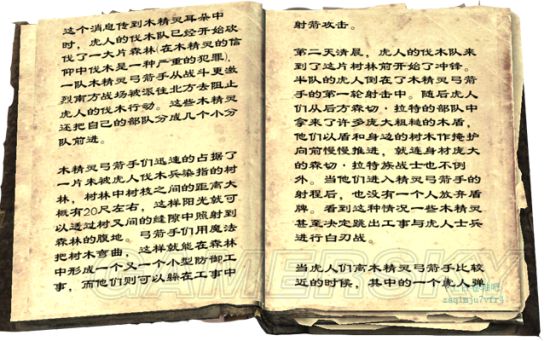 这个消息传到木精灵耳朵中
时，虎人的伐木队已经开始砍
伐了一大片森林(在木精灵的信
仰中伐木是一种严重的犯罪)，
木精灵弓箭手们从战斗更激
烈南方战场被派往北方去阻止
虎人的伐木行动。这些木精灵
还把自己的部队分成几个小分
队前进。
木精灵弓箭手们迅速的占据了
一片未被虎人伐木兵染指的树
林，树林中树枝之间的距离大
概有20尺左右，这样阳光就可
以透过树叉间的缝隙中照射到
森林的腹地。弓箭手们用魔法
把树木弯曲，这样就能在森林
中形成一个又一个小型防御工
事，而他们则可以躲在工事中
射箭攻击。
第二天清晨，虎人的伐木队来
到了这片树林前开始了冲锋。
半队的虎人倒在了木精灵弓箭
手的第一轮射击中。随后虎人
们从后方森切·拉特的部队中
拿来了许多庞大粗糙的木盾，
他们以盾和身边的树木作掩护
向前慢慢推进，就连身材庞大
的森切·拉特族战士也不例
外。当他们进入精灵弓箭手的
射程后，也没有一个人放弃盾
牌。看到这种情况一些木精灵
甚至决定跳出工事与虎人士兵
进行白刃战。
当虎人们离木精灵弓箭手比较
近的时候，其中的一个虎人弹
GAMERSKY